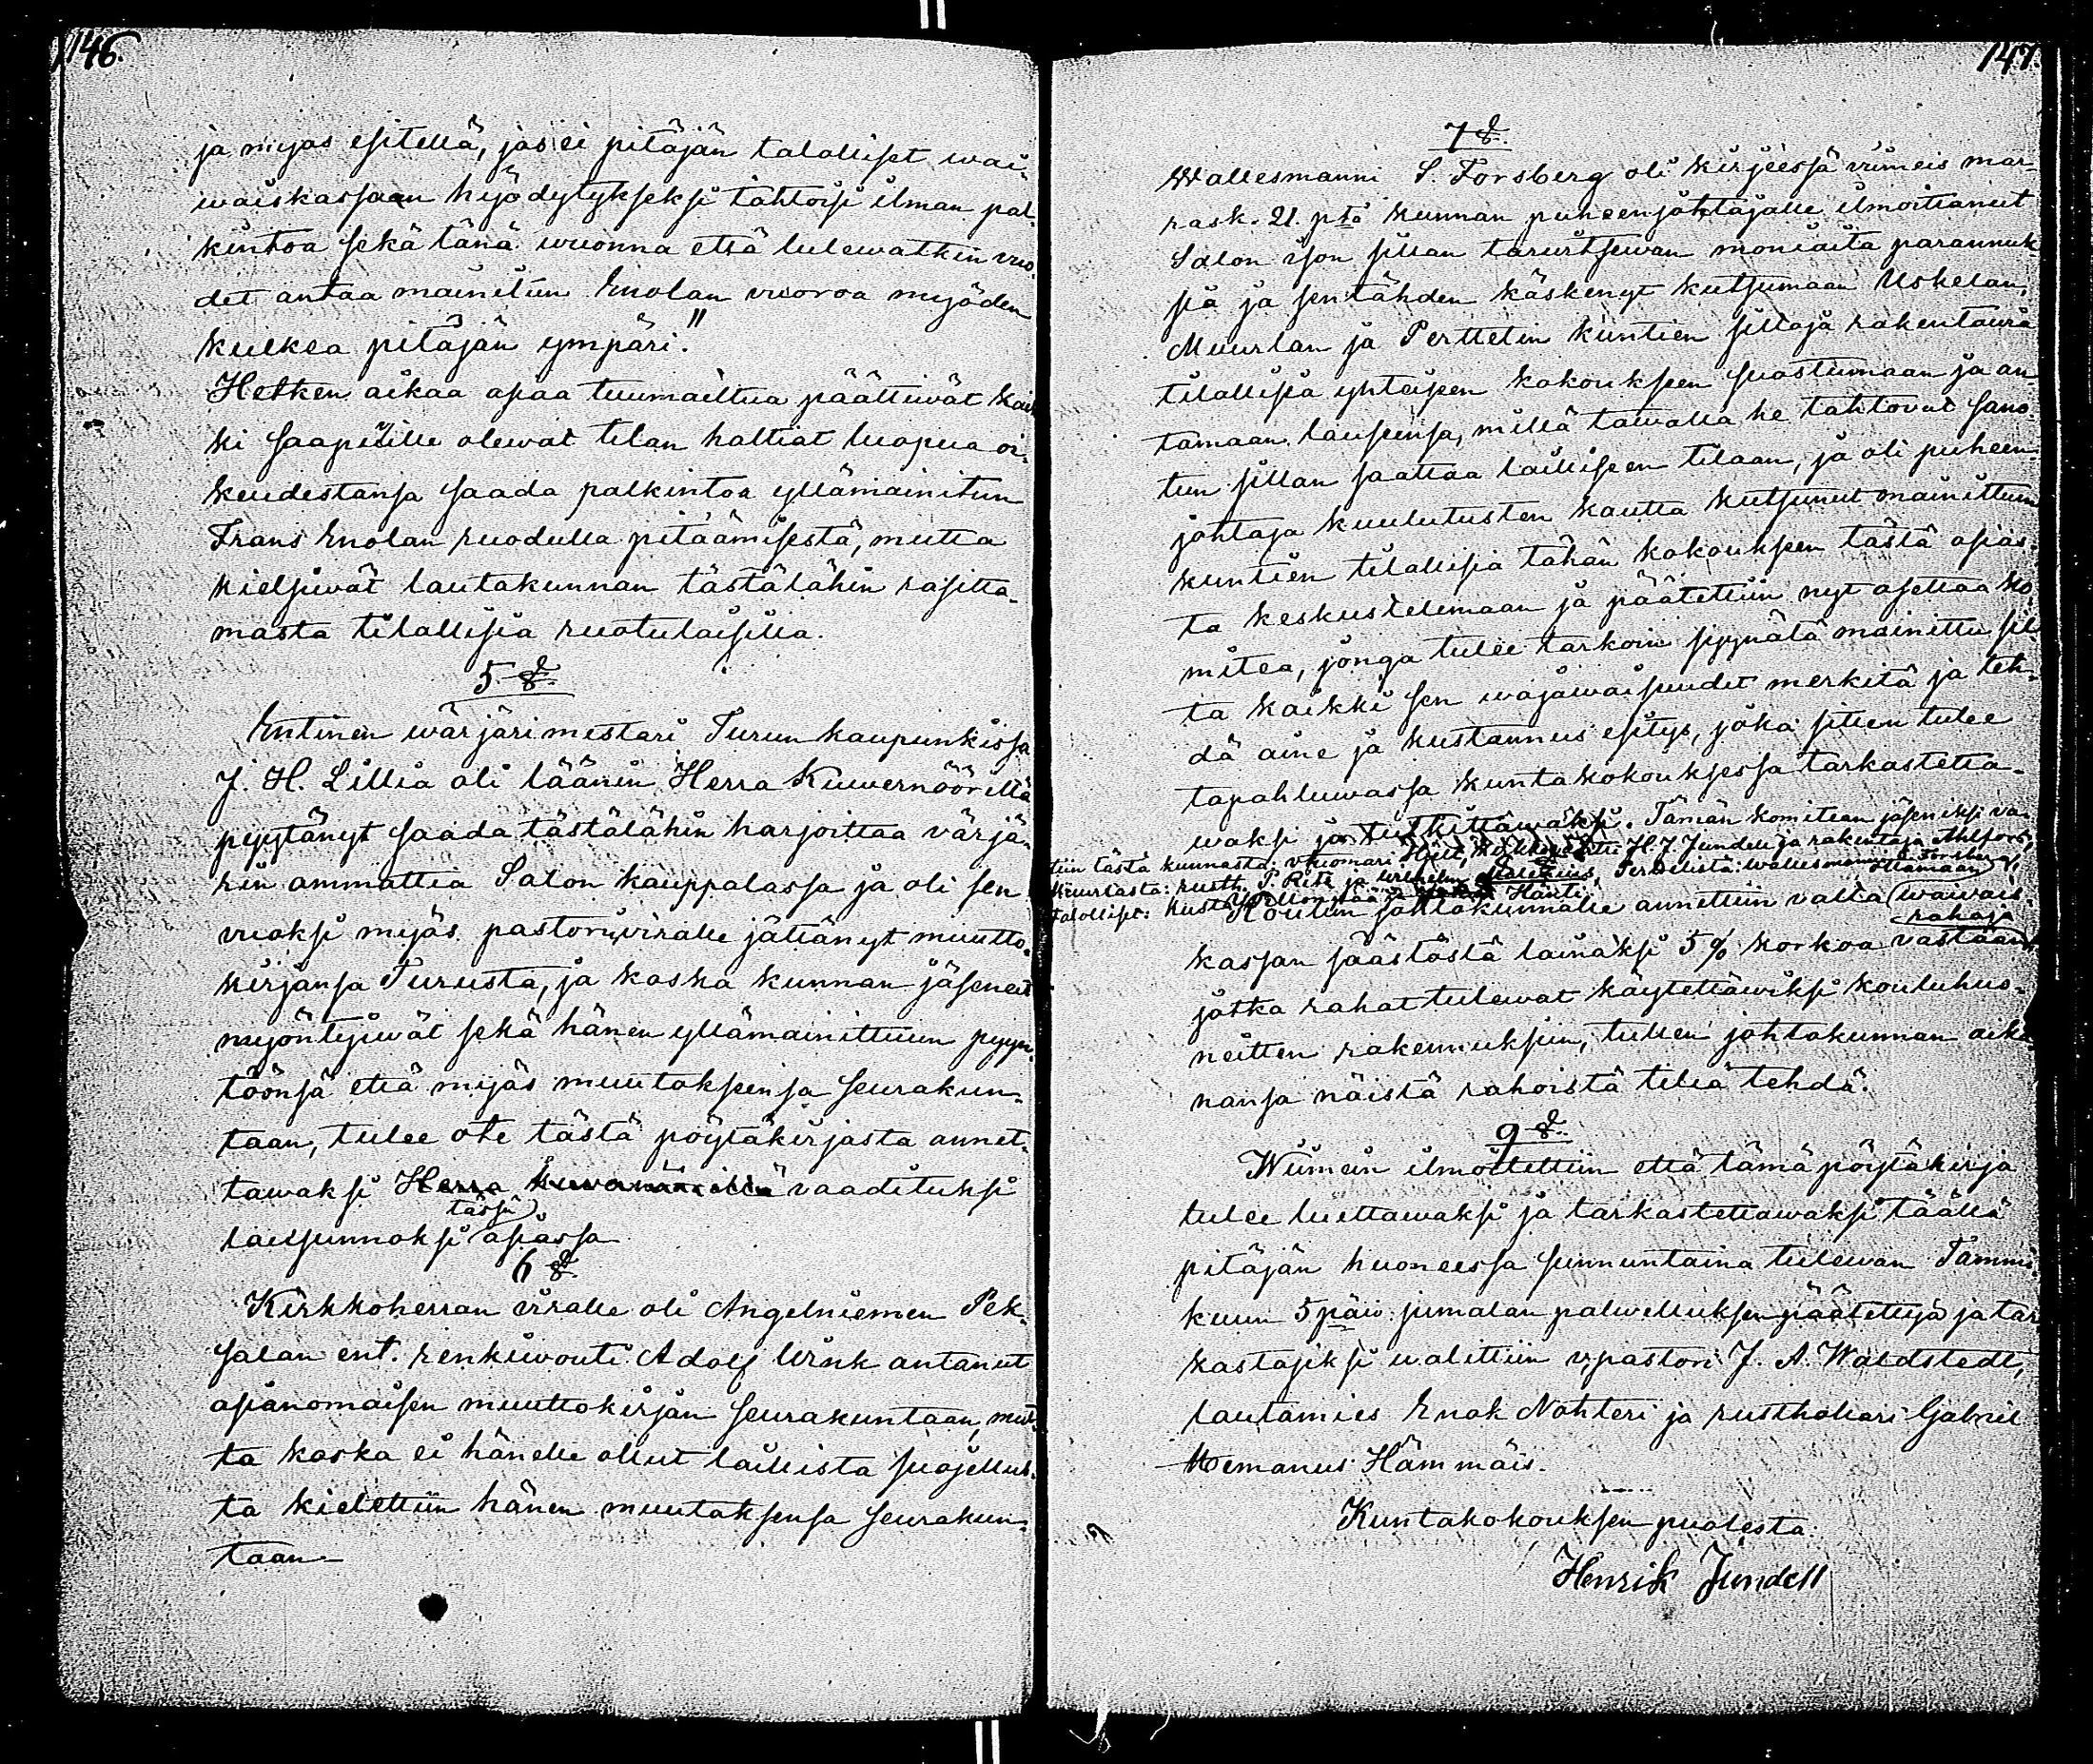 146.
ja myös esitellä, jos ei pitäjän talolliset wai-
waiskassaan hyödytykseksi tahtoisi ilman pal-
kintoa sekä tänä wuonna että tulewatkin vuo-
det antaa mainitun Enolan vuoroa myöden
kulkea pitäjän ympäri."
Hetken aikaa asiaa tuumailtua päättiwät kaik
ki saapuille olewat tilan haltiat luopua oi-
keudestansa saada palkintoa yllämainitun
Frans Enolan ruodulla pitäämisestä, mutta
kielsiwät lautakunnan tästälähin rasitta-
masta tilallisia ruotulaisilla.
5 §.
Entinen wärjärimestari Turun kaupunkissa
J. H. Lillia oli läänin Herra Kuwernöörillä
pyytänyt saada tästälähin harjoittaa värjä-
rin ammattia Salon kauppalassa ja oli sen
vuoksi myös pastorin viralle jättänyt muutto-
kirjansa Turusta, ja koska kunnan jäsenet
myöntyiwät sekä hänen yllämainittuun pyyn-
töönsä että myös muutoksensa seurakun-
taan, tulee ote tästä pöytäkirjasta annet-
tawaksi Herra vaadituksi
tässä
lausunnoksi asiassa
6 §.
Kirkkoherran viralle oli Angelniemen Pek-
salan ent. renkiwouti Adolf Wink antanut
asianomaisen muuttokirjan seurakuntaan, mut-
ta koska ei hänelle ollut laillista suojellus-
ta kielettiin hänen muutaksensa seurakun-
taan
147.
7 §.
Wallesmanni S. Forsberg oli kirjeessä viimeis mar-
rask. 21. ptä kunnan puheenjohtajalle ilmoittanut
Salon ison sillan tarwitsewan moniaita parannuk
sia ja sentähden käskenyt kutsumaan Uskelan,
Muurlan ja Perttelin kuntien siltoja rakentawia
tilallisia yhteiseen kokoukseen suostumaan ja an-
tamaan lausunsa, millä tawalla he tahtovat sano-
tun sillan saattaa lailliseen tilaan, ja oli puheen-
johtaja kuulutusten kautta kutsunut mainittuin
kuntien tilallisia tähän kokoukseen tästä asias-
ta keskustelemaan ja päätettiin nyt asettaa ko-
mitea, jonga tulee tarkoin syynätä mainittu sil-
ta kaikki sen wajawaisuudet merkitä ja teh-
dä aine ja kustannus esitys, joka sitten tulee
tapahtuwassa kuntakokouksessa tarkastetta-
waksi ja tutkittawaksi. Tämän komitean jäseniksi va-
tiin tästä kunnasta: H. J. Jundell ja rakentaja Ahlfors,
Muurlasta: rusth. P. Rite ja Wilhelm Pertelistä: wallesmanni S. Forsberg,
talolliset: Kusta Hänti
Koulun johtokunnalle annettiin valta waiwais-
rahaja
kassan säästöstä lainaksi 5% korkoa vastaan
jotka rahat tulewat käytettäwiksi kouluhuo-
neitten rakennuksiin, tullen johtokunnan aika
nansa näistä rahoista tiliä tehdä.
9 §.
Wiimein ilmoitettiin että tämä pöytäkirja
tulee luettawaksi ja tarkastettawaksi täällä
pitäjän huoneessa sunnuntaina tulewan Tammi-
kuun 5 päiv. jumalan palwelluksen päätettyä ja tar
kastajiksi walittiin v. pastori J. A. Waldstedt,
lautamies Enok Nohteri ja rusthollari Gabriel
Hemanus Hämmäis.
Kuntakokouksen puolesta
Henrik Jundell